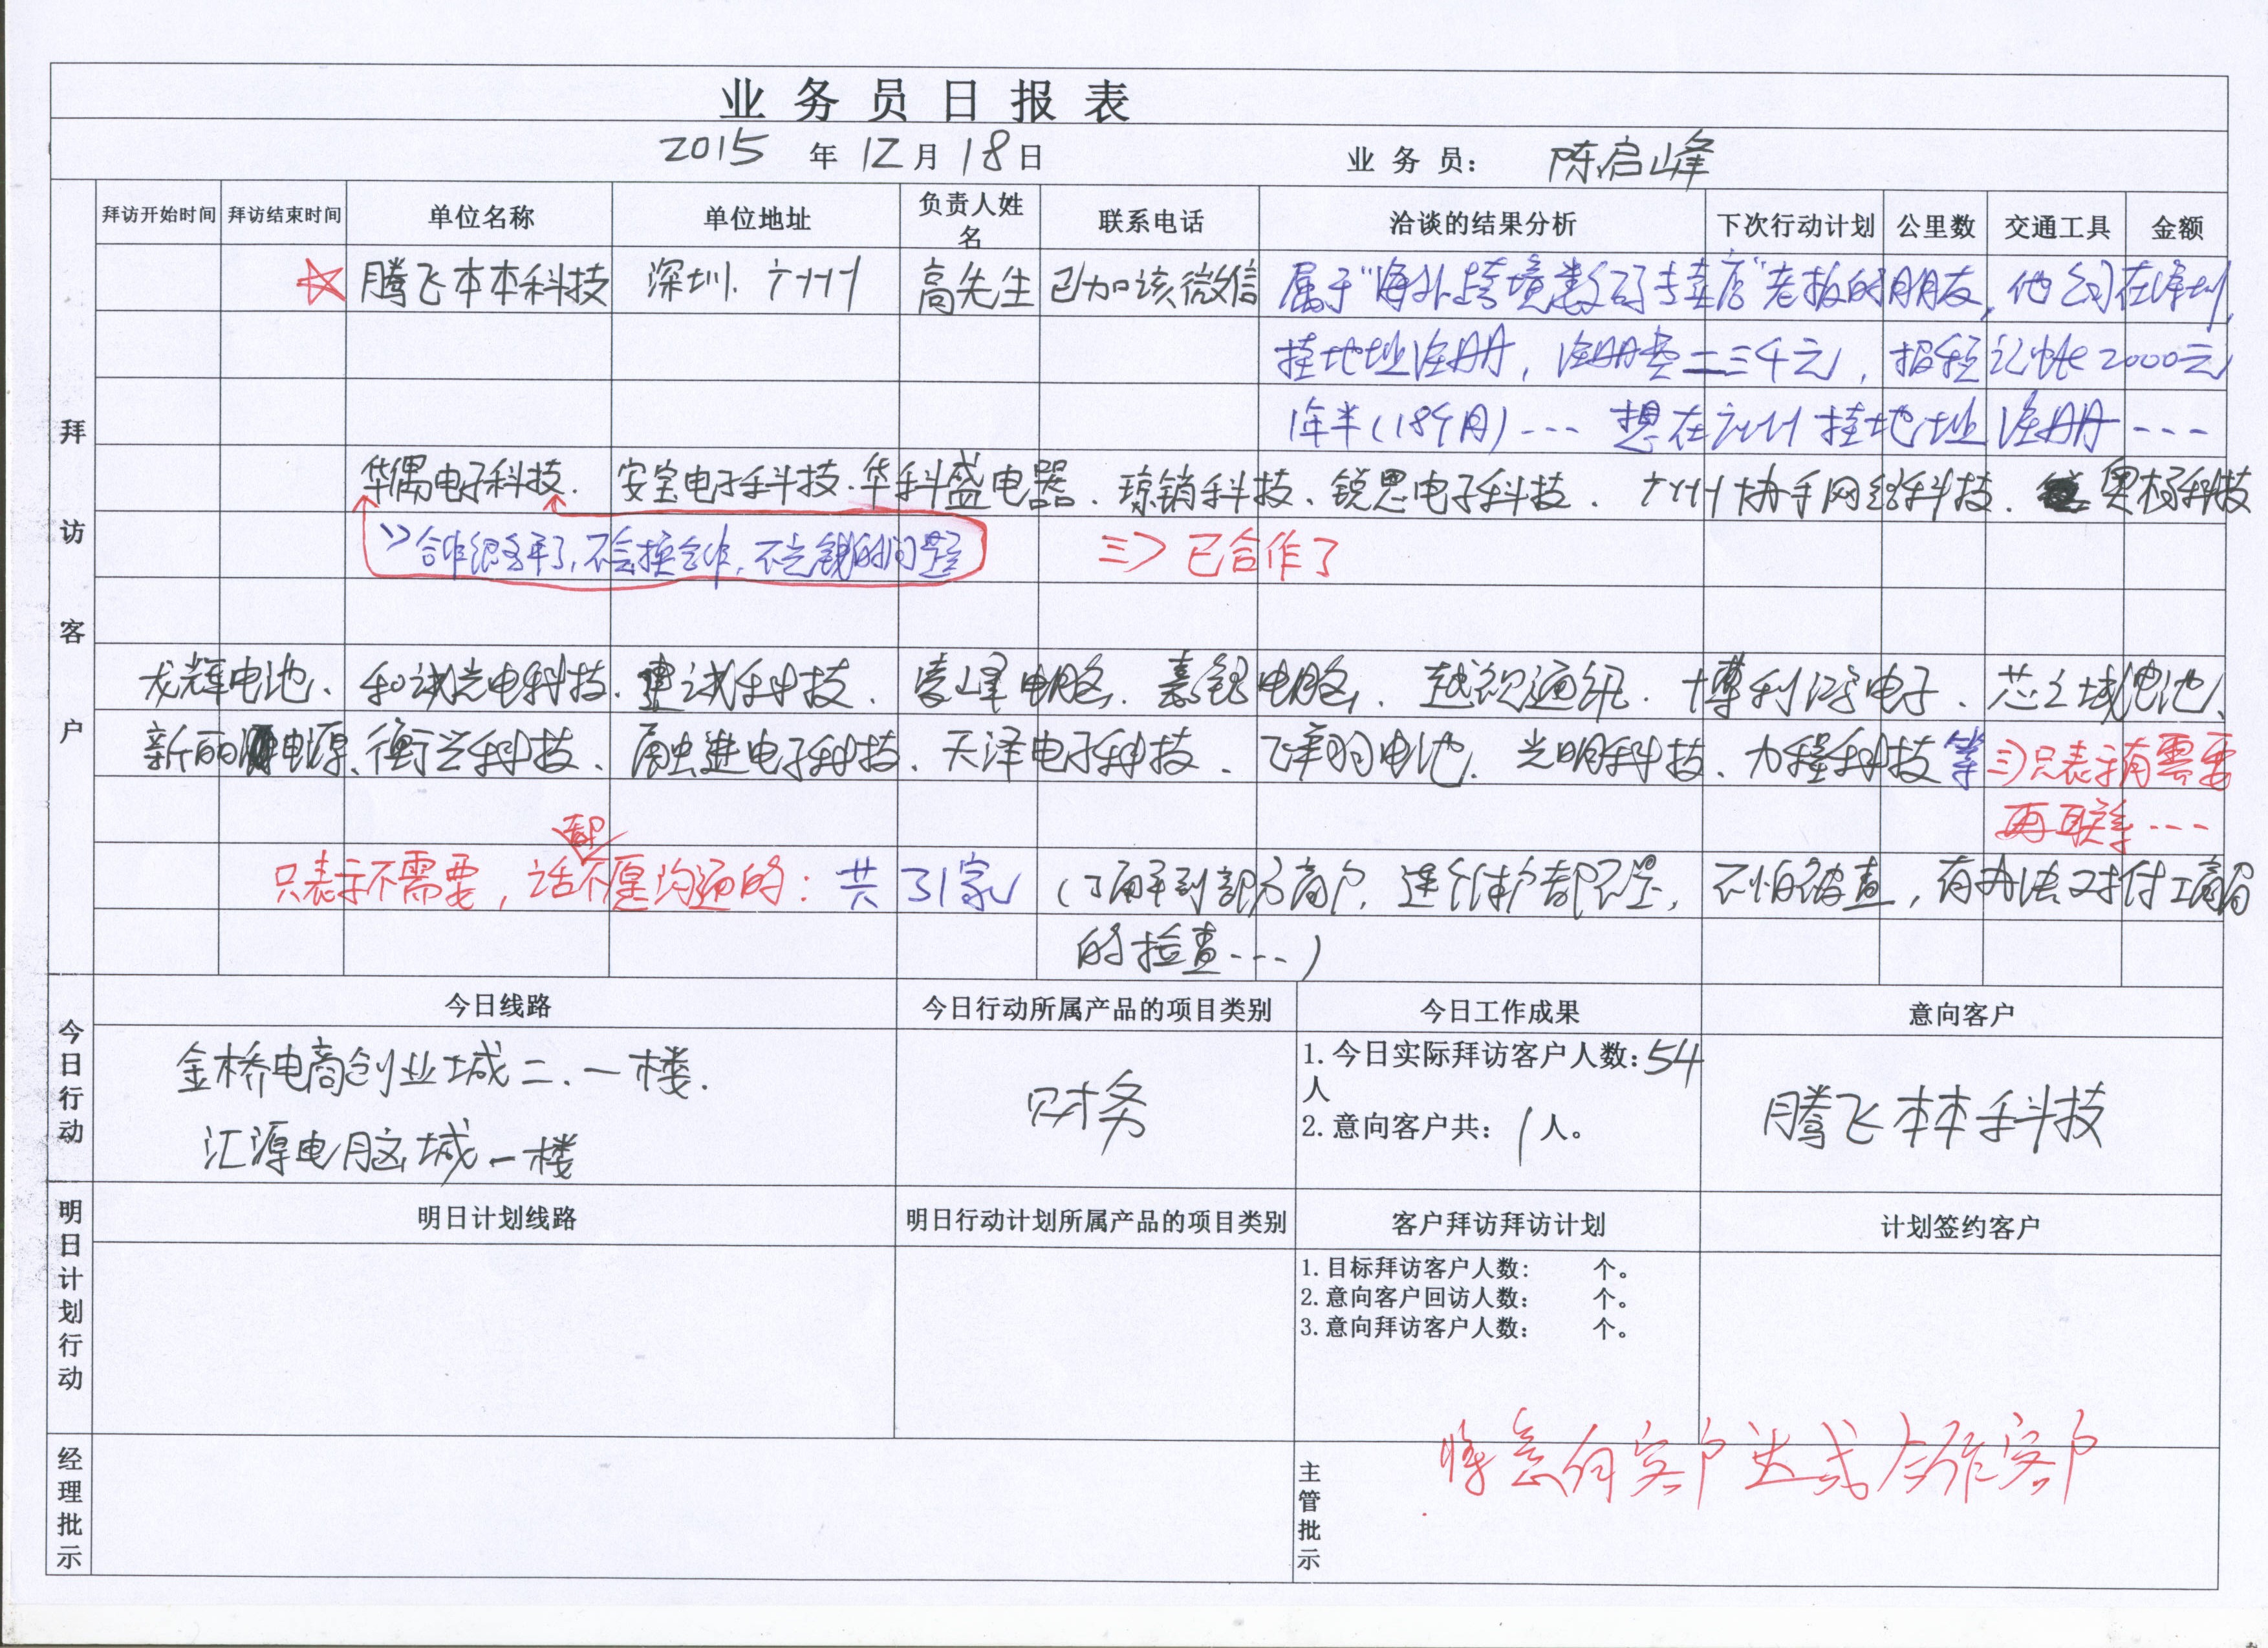 业务员日报表
2015 年 12 月 18 日 业务员: 陈启峰
拜访客户
拜访开始时间 拜访结束时间 单位名称 单位地址 负责人姓名 联系电话 洽谈的结果分析 下次行动计划 公里数 交通工具 金额
☆ 腾飞本本科技 深圳、广州 高先生 已加该微信 属于“海外跨境数码专卖店”老板的朋友,他公司在深圳,
挂地址注册,注册费二三千元,报税记帐2000元
1年半(18个月)--- 想在广州挂地址注册---
华偶电子科技、安宝电子科技、华科盛电器、琼销科技、锐思电子科技、广州协手网络科技、奥极科技
合作很多年了,不会换合作,不是钱的问题 => 已合作了
龙辉电池、和诚光电科技、建诚科技、凌峰电脑、嘉铭电脑、越视通讯、博利鸿电子、芯之域电池、
新丽电源、衡兴科技、融进电子科技、天泽电子科技、飞羽电池、光明科技、力程科技等 => 只表示有需要
再联系---
只表示不需要,话都不愿沟通的: 共31家 (了解到部分商户,连个体户都不是,不怕被查,有办法对付工商局
的检查---)
今日行动
今日线路 今日行动所属产品的项目类别 今日工作成果 意向客户
金桥电商创业城二、一楼.
汇源电脑城一楼
财务
1.今日实际拜访客户人数:54人
2.意向客户共: 1 人。
腾飞本本科技
明日计划行动
明日计划线路 明日行动计划所属产品的项目类别 客户拜访拜访计划 计划签约客户
1.目标拜访客户人数: 个。
2.意向客户回访人数: 个。
3.意向拜访客户人数: 个。
经理批示
主管批示
将意向客户达成合作客户